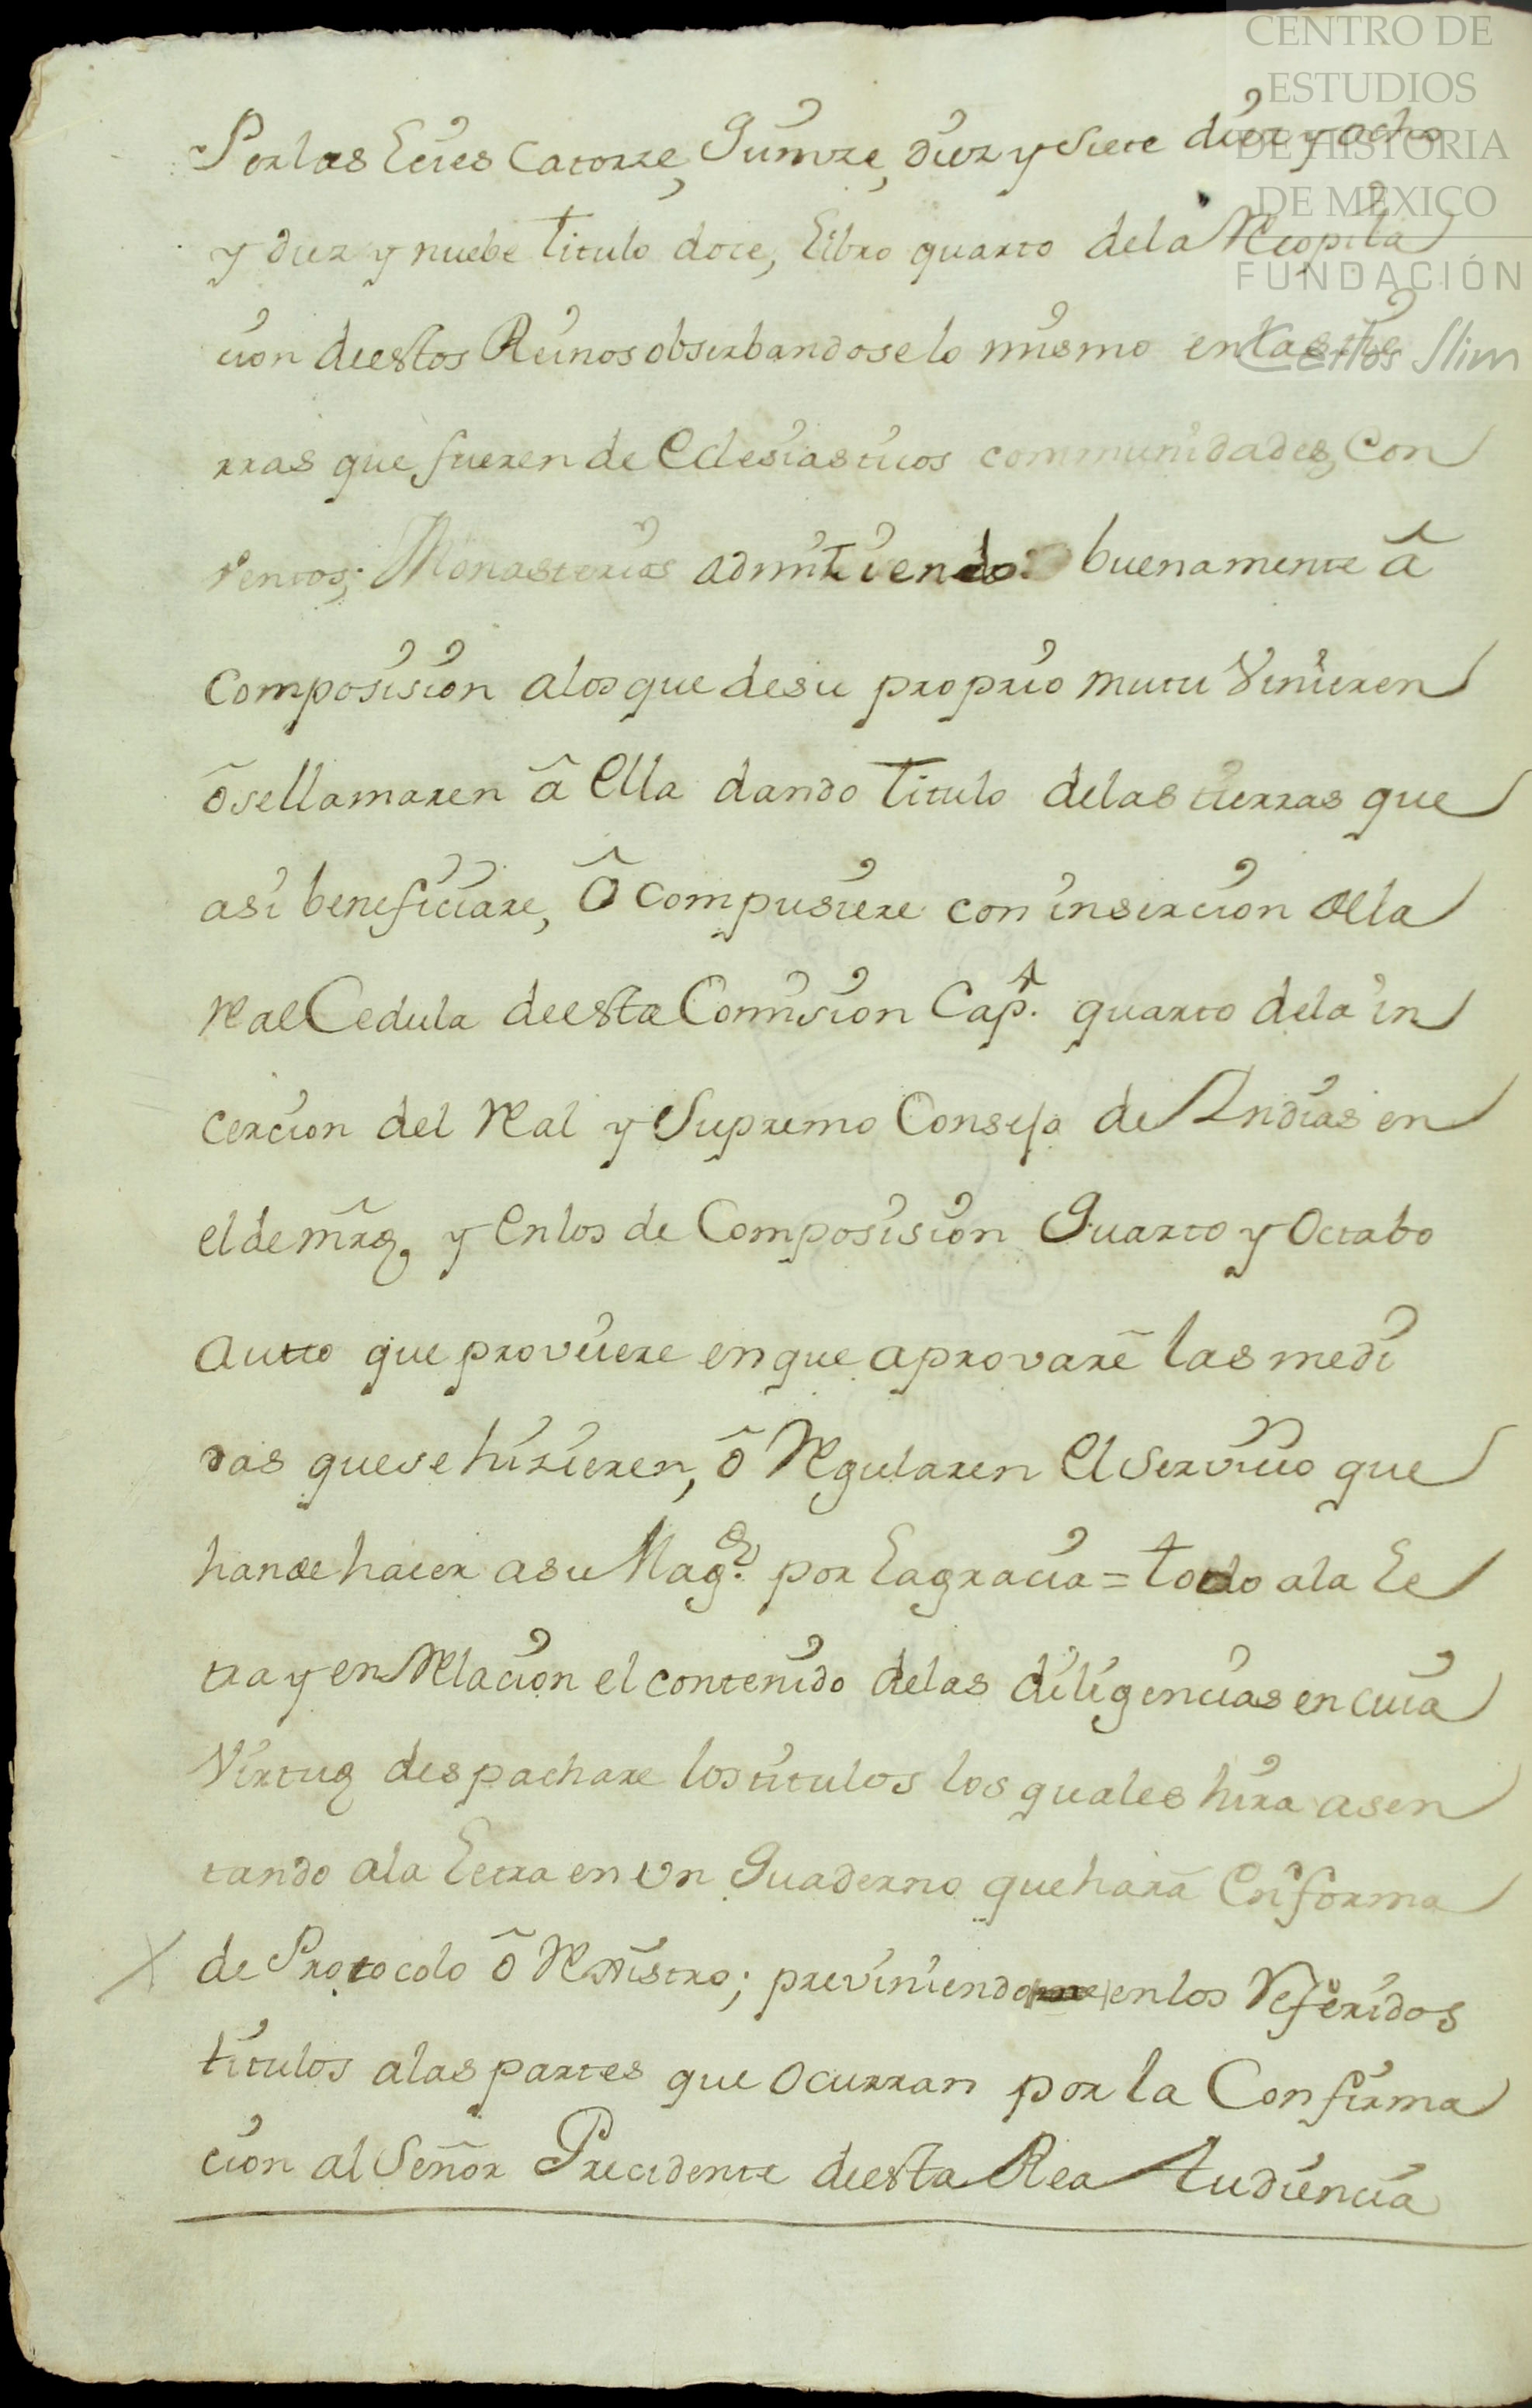 CENTRO DE
ESTUDIOS
DE HISTORIA
DE MÉXICO
FUNDACIÓN
Carlos Slim
Por las Leies Catorze, Quinze, diez y siete diez y ocho
y diez y nuebe titulo doce, Libro quarto dela Recopila
cion deestos Reinos obserbandose lo mismo enlas tie
rras que fueren de Eclesiasticos communidades, Con
ventos, Monasterios admitiendo buenamente â
Composision alos que de su proprio mutu Vinieren
ô se llamaren â Ella dando titulo delas tierras que
asi beneficiare, ô compusiere con insercion della
Real Cedula deesta Comision Cap.º quarto dela in
cercion del Real y Supremo Consejo de Indias en
el de mrd, y en los de Composision Quarto y Octabo
autto que proveiere en que aprovare las medi
das que se hizieren, ô Regularen el servicio que
han de hacer a su Magd. por la gracia = todo ala Le
tra y en Relacion el contenido delas diligencias en cuia
Virtud despachare los titulos los quales hira asen
tando ala Letra en vn Quaderno que hara en forma
de Protocolo ô Rexistro; previniendo en los Referidos
titulos alas partes que ocurran por la Confirma
cion al Señor Precidente deesta Rea Audiencia